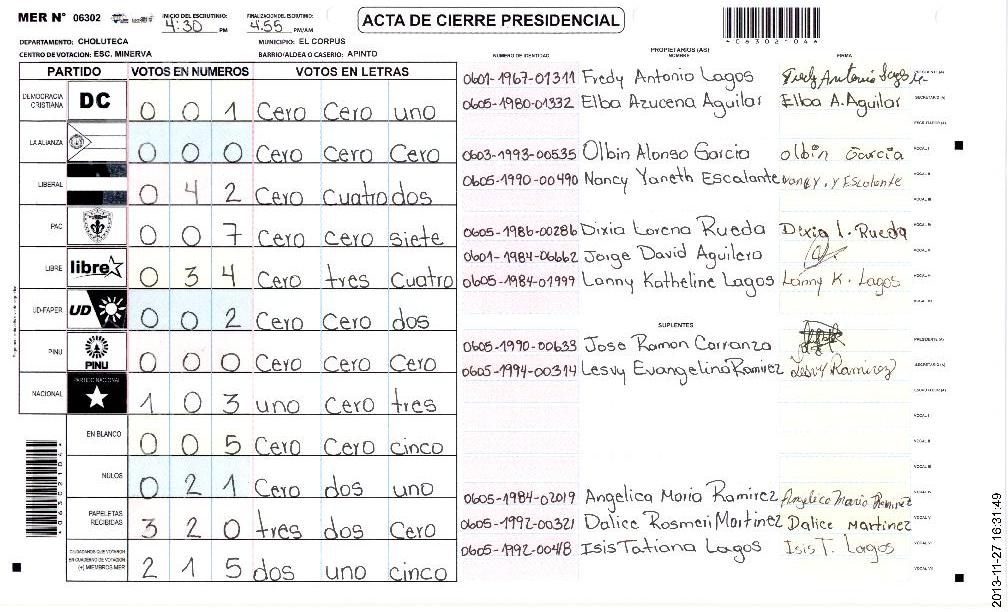 MER Nº 06302
INICIO DEL ESCRUTINIO:
4:30 PM
FINALIZACION DEL ESCRUTINIO:
4:55 PM/AM
ACTA DE CIERRE PRESIDENCIAL
*06302104*
DEPARTAMENTO: CHOLUTECA
MUNICIPIO: EL CORPUS
CENTRO DE VOTACION: ESC. MINERVA
BARRIO/ALDEA O CASERIO: APINTO
PARTIDO VOTOS EN NUMEROS VOTOS EN LETRAS
DEMOCRACIA CRISTIANA DC 0 0 1 Cero Cero uno
LA ALIANZA 0 0 0 Cero Cero Cero
LIBERAL 0 4 2 Cero Cuatro dos
PAC 0 0 7 Cero cero siete
LIBRE libre 0 3 4 Cero tres Cuatro
UD-FAPER UD 0 0 2 Cero Cero dos
PINU PINU 0 0 0 Cero Cero Cero
NACIONAL PARTIDO NACIONAL 1 0 3 uno Cero tres
EN BLANCO 0 0 5 Cero Cero cinco
NULOS 0 2 1 Cero dos uno
PAPELETAS RECIBIDAS 3 2 0 tres dos Cero
CIUDADANOS QUE VOTARON EN CUADERNO DE VOTACION (+) MIEMBROS MER 2 1 5 dos uno cinco
PROPIETARIOS (AS)
NUMERO DE IDENTIDAD NOMBRE FIRMA
0601-1967-01311 Fredy Antonio Lagos Fredy Antonio Lagos PRESIDENTE (A)
0605-1980-01332 Elba Azucena Aguilar Elba A. Aguilar SECRETARIO (A)
ESCRUTADOR (A)
0603-1993-00535 Olbin Alonso Garcia Olbin Garcia VOCAL I
0605-1990-00490 Nancy Yaneth Escalante Nancy . y Escalante VOCAL II
VOCAL III
0605-1986-00286 Dixia Lorena Rueda Dixia l. Rueda VOCAL IV
0601-1984-06662 Jorge David Aguilera VOCAL V
0605-1984-01999 Lanny Katheline Lagos Lanny K. Lagos VOCAL VI
VOCAL VII
SUPLENTES
0605-1990-00633 Jose Ramon Carranza PRESIDENTE (A)
0605-1994-00314 Lesvy Evangelina Ramirez Lesvy Ramirez SECRETARIO (A)
ESCRUTADOR (A)
VOCAL I
VOCAL II
VOCAL III
0605-1984-02019 Angelica Maria Ramirez Angelica Maria Ramirez VOCAL IV
0605-1992-00321 Dalice Rosmeri Martinez Dalice Martinez VOCAL V
0605-1992-0048 Isis Tatiana Lagos Isis T. Lagos VOCAL VI
VOCAL VII
2013-11-27 16:31:49